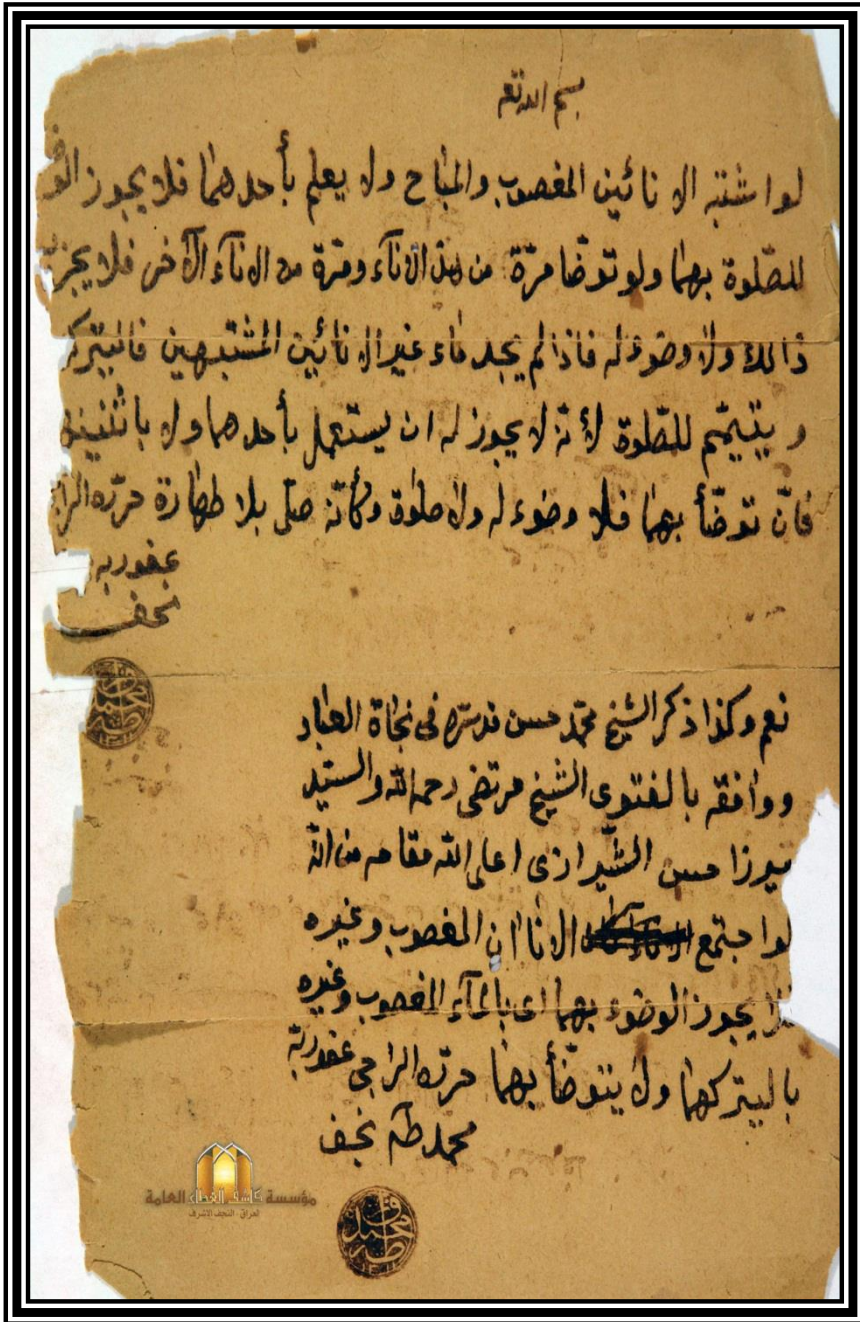 بسم الله تعه
لوا شتبه الا نائين المغصوب والمباح ولا يعلم بأحدهما فلا يجوز الو
للصّلوة بهما ولو توضّا مرّة من هذا الاناء ومرّة من الاناء الآخر فلا يجز
ذالك ولا وضوء له فاذا لم يجد ماء غير الا نائين المشتبهين فاليتركه
و يتيمّم للصّلوة لأنّه لا يجوز له ان يستعمل بأحدهما ولا باثنين
فانّ توضّأ بهما فلا وضوء له ولا صلوة وكأنّه صلّى بلا طهارة حرّره الرا
عفوربه
نجف
نعم وكذا ذكر الشيخ محمّد حسن قدسّره في نجاة العباد
ووافقه بالفتوى الشيخ مرتضى رحمه الله والسيّد
ميرزا حسن الشّيرازى اعلى الله مقامه من انّه
لوا جتمع الاناان المغصوب وغيره
فلا يجوز الوضوء بهما اى بالمآء المغصوب وغيره
باليتركهما ولا يتوضّأ بهما حرّره الراجى عفوربّه
محمد طه نجف
مؤسسة كاشف الغطاء العامة
العراق النجف الاشرف